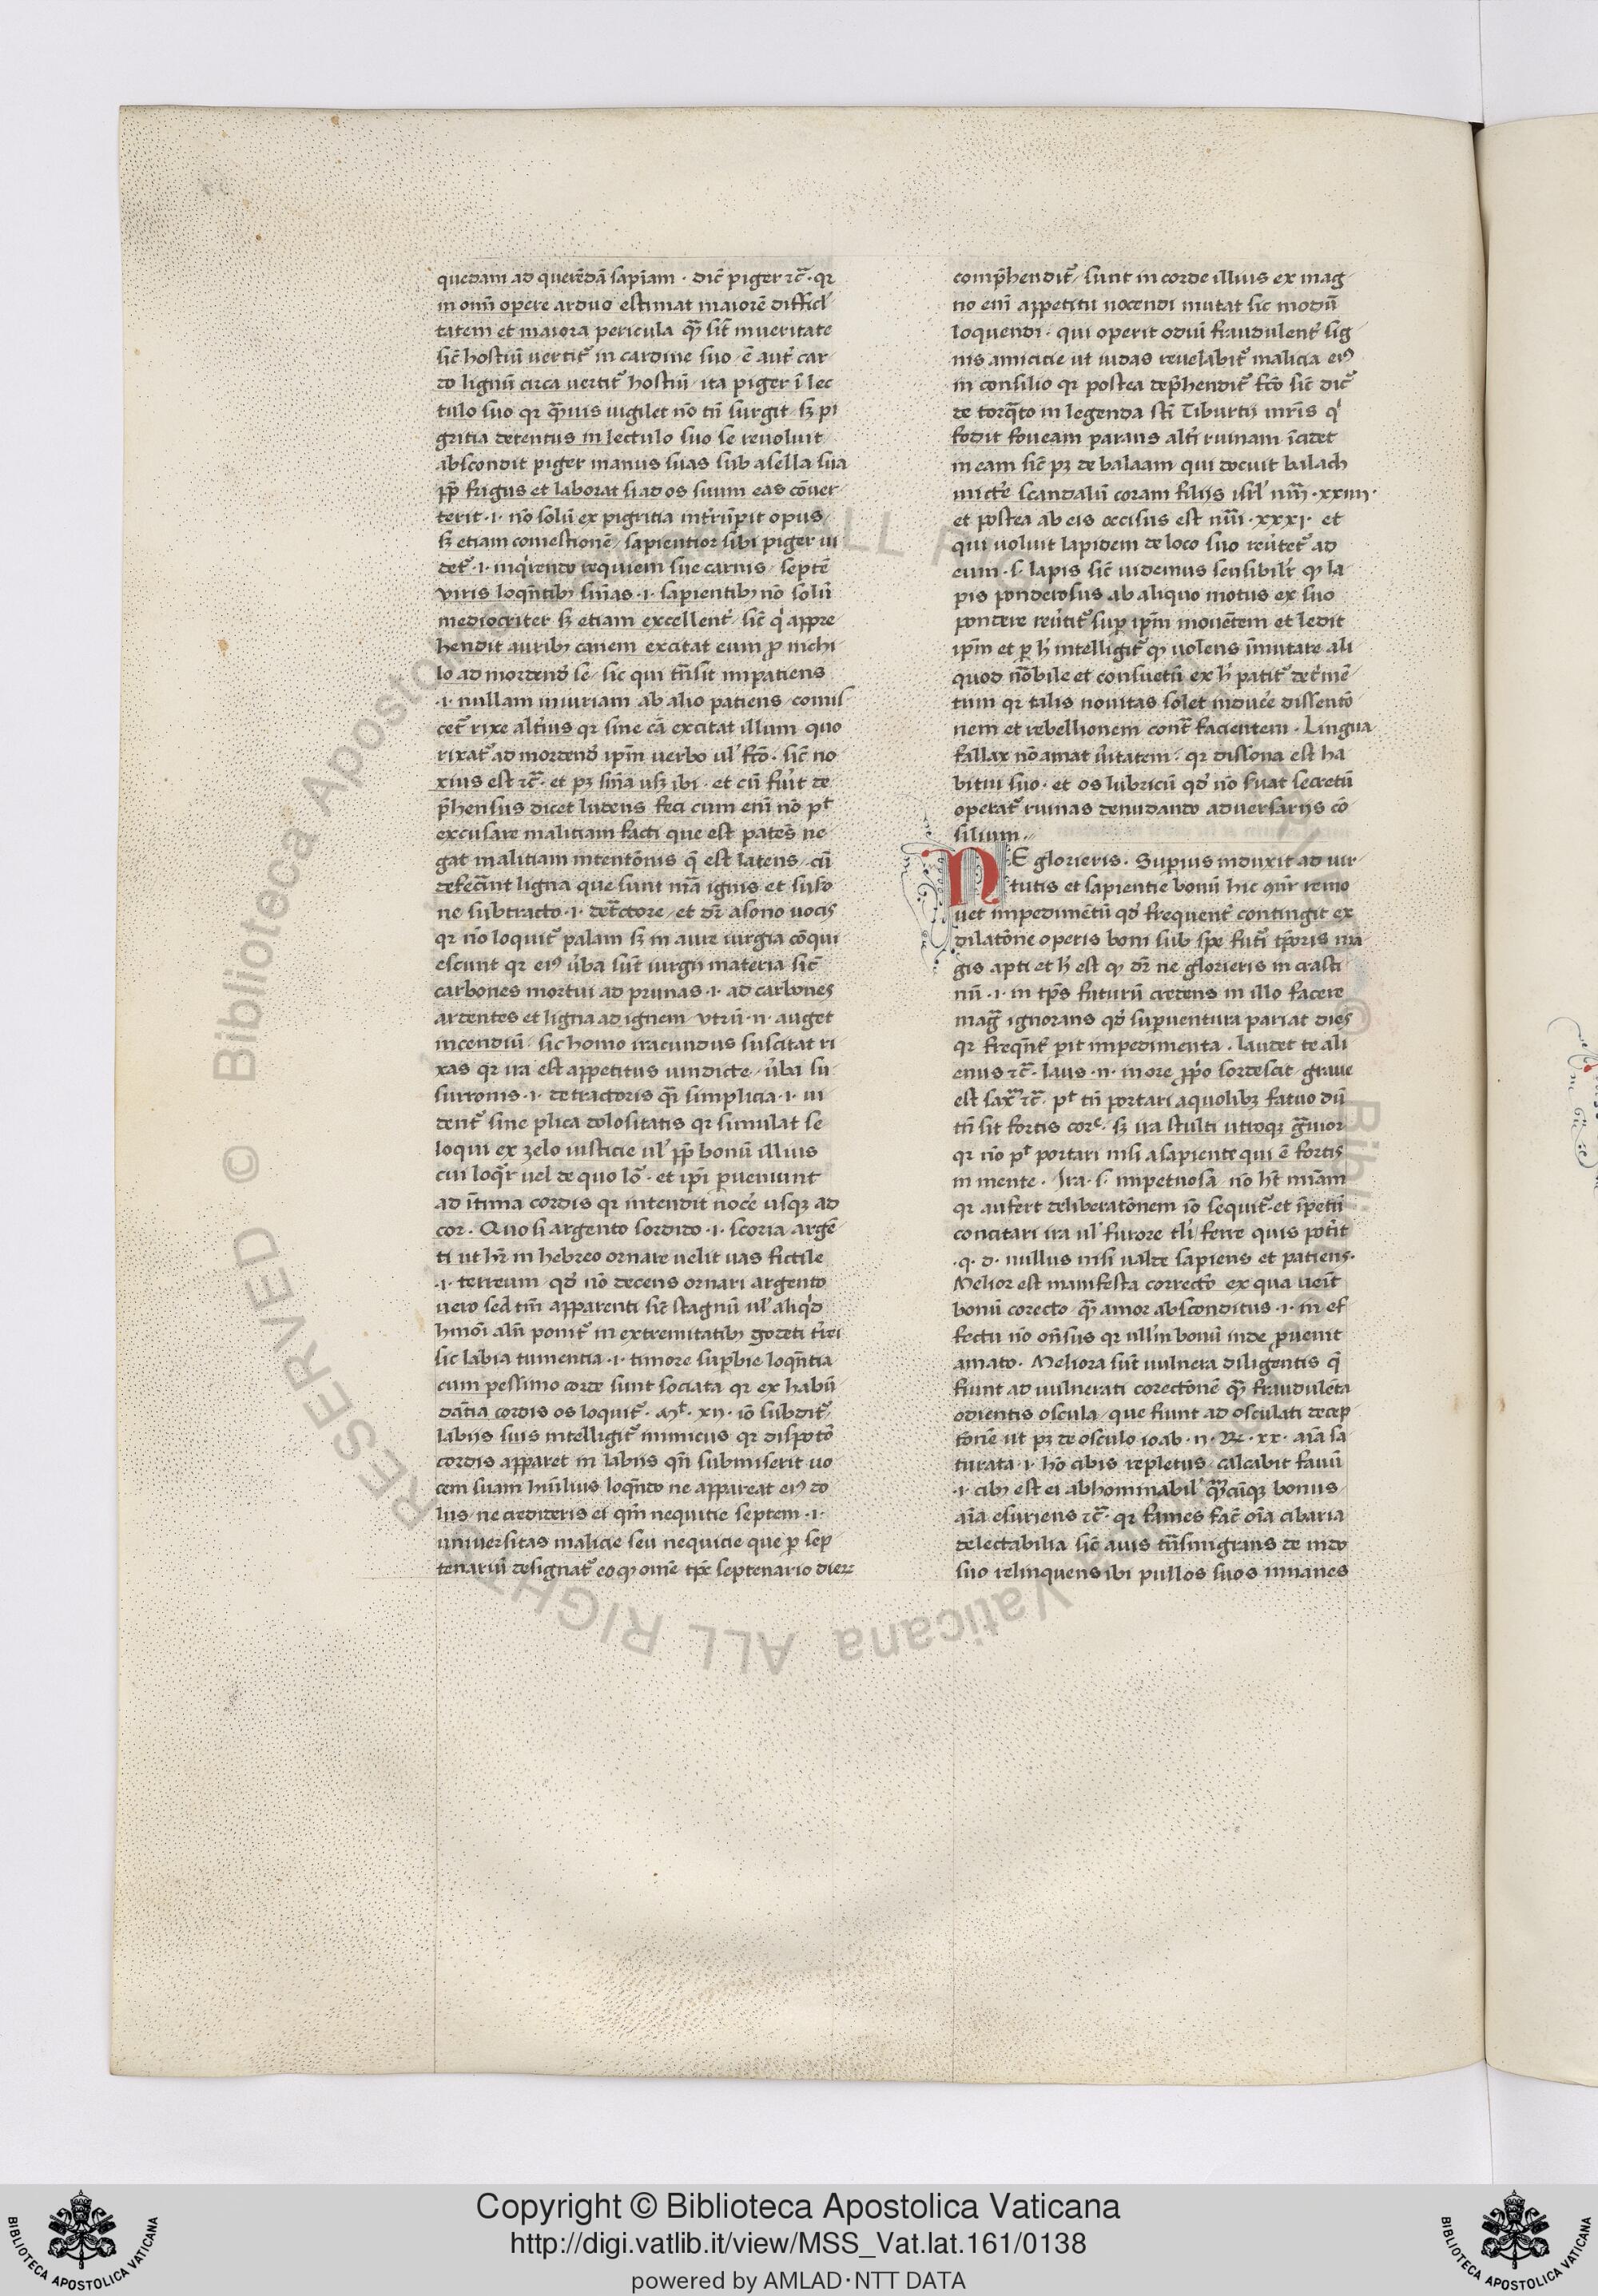 quedam ad querēdā sapīam · dic̄ piger ⁊c̄ · qꝛ
in om̄i opere arduo estimat maiorē difficl'
tatem et maiora pericula qᷓ sit̄ in veritate
sic̄ hostiū vertit᷑ in cardine suo / ē aut̄ car
do lignū circa vertit᷑ hostiū / ita piger ī lec
tulo suo qꝛ qᷓuis vigilet nō tn̄ surgit / sꝫ pi
gritia detentus in lectulo suo se revoluit /
abscondit piger manus suas sub asella sua
ꝓp̄ frigus et laborat si ad os suum eas cōver
terit · i · nō solū ex pigritia int̄rūpit opus /
sꝫ etiam comestionē / sapientior sibi piger vi
det᷑ · i · inq̄rendo requiem sue carnis / septē
viris loqn̄tibꝫ sn̄ias · i · sapientibꝫ nō solū
mediocriter sꝫ etiam excellent̄ / sic̄ qͥ appre
hendit auribꝫ canem excitat eum ꝓ nichi
lo ad mordend̄ se / sic qui tn̄sit impatiens
· i · nullam iniuriam ab alio patiens / comis
cet᷑ rixe alt̄ius qꝛ sine cā excitat illum quo
rixat᷑ ad mordend̄ ip̄m verbo vl' fc̄o · sic̄ no
xius est ⁊c̄ · et pꝫ sn̄ia vsꝫ ibi · et cū fūit de
p̄hensus dicet ludens feci cum enī nō pᵗ
excusare malitiam facti que est patēs ne
gat malitiam intentōnis q̄ est latens / cū
defecīnt ligna que sunt mā ignis et suso
ne subtracto · i · det̄ctore / et dr̄ a sono vocis
qꝛ nō loquit᷑ palam sꝫ in aure iurgia cōqui
escunt qꝛ eiꝰ v̄ba sūt iurgii materia sic̄
carbones mortui ad prunas · i · ad carbones
ardentes et ligna ad ignem / vtrū · n · auget
incendiū / sic homo iracundus suscitat ri
xas qꝛ ira est appetitus vindicte / v̄ba su
surronis · i · detractoris qᷓ simplicia · i · vi
dent᷑ sine plica dolositatis qꝛ simulat se
loqui ex zelo iusticie vl' ꝓp̄ bonū illius
cui loqͥr vel de quo lō · et ip̄i ꝑveniunt
ad ītima cordis qꝛ intendit noc̄e usqꝫ ad
cor · Quo si argento sordido · i · scoria argē
ti ut hr̄ in hebreo ornare velit vas fictile
· i · terreum qd̄ nō decens ornari argento
vero sed tm̄ apparenti sic̄ stagnū vl' aliqͥd
hmōi alīi ponit᷑ in extremitatibꝫ
sic labia tumentia · i · timore suꝑbie loqn̄tia
cum pessimo corde sunt sociata qꝛ ex habū
dātia cordis os loquit᷑ · Mᵗ · xii · iō subdit᷑ /
labiis suis intelligit᷑ inimicus qꝛ dispotō
cordis apparet in labiis qn̄ submiserit vo
cem suam hūiliꝰ loqn̄do ne appareat eiꝰ do
lus / ne credideris ei qm̄ nequitie septem · i ·
universitas malicie seu nequicie que ꝑ sep
tenariū designat᷑ eo qꝫ omē tp̄ꝰ septenario dieꝝ
comp̄hendit᷑ / sunt in corde illius ex mag
no enī appetitu nocendi mutat sic modū
loquendi · qui operit odiū fraudulent̄ sig
nis amicicie ut iudas revelabit᷑ malicia eiꝰ
in consilio qꝛ postea dep̄hendit᷑ fc̄o sic̄ dic̄
de torq̄to in legenda sc̄i Tiburtii mr̄is qͥ
fodit foveam parans alt̄i ruinam īcidet
in eam sic̄ pꝫ de balaam qui docuit balach
mict̄e scandalū coram filiis isrl' nūi · xxiiii ·
et postea ab eis occisus est nūi · xxxi · et
qui voluit lapidem de loco suo rev̄tet᷑ ad
eum · s · lapis sic̄ videmus sensibilr̄ qꝫ la
pis ponderosus ab aliquo motus ex suo
pondere rev̄tit᷑ suꝑ ip̄m movētem et ledit
ip̄m et ꝑ h̄ intelligit᷑ qꝫ volens īmutare ali
quod nōbile et consuetū ex h̄ patit᷑ det̄mē
tum qꝛ talis novitas solet induc̄e dissentō
nem et rebellionem cont̄ facientem · Lingua
fallax nō amat v̄itatem / qꝛ dissona est ha
bitui suo · et os lubricū qd̄ nō s̄vat secretū
operat᷑ ruinas denudando adversariis cō
silium ·
NE glorieris · Supius induxit ad vir
tutis et sapientie bonū hic qn̄r remo
vet impedimētū qd̄ frequent̄ contingit ex
dilatōne operis boni sub spe fut̄i tp̄oris ma
gis apti et h̄ est qꝫ dr̄ ne glorieris in crasti
nū · i · in tp̄s futurū credens in illo facere
magᷓ ignorans qd̄ suꝑventura pariat dies
qꝛ freqn̄t̄ pit impedimenta · laudet te ali
enus ⁊c̄ · laus · n · in ore ꝓp̄o sordescit / grave
est saxͫ ⁊c̄ · pᵗ tn̄ portari a quolibꝫ fatuo dū
tn̄ sit fortis corᵉ · sꝫ ira stulti utroqꝫ gᷓvior
qꝛ nō pᵗ portari nisi a sapiente qui ē fortis
in mente · Ira · s · impetuosa nō hт̄ mīam
qꝛ aufert deliberatōnem iō sequit᷑ et īpetū
concitari ira vl' furore tl'i ferre quis pōtit
· q · d · nullus nisi valde sapiens et patiens ·
Melior est manifesta correctō ex qua veīt
bonū corecto / qᷓ amor absconditus · i · in ef
fectu nō oñsus qꝛ null'm bonū inde ꝓvenit
amato · Meliora sūt vulnera diligentis q̄
fiunt ad vulnerati corectōnē qᷓ fraudulēta
odientis oscula / que fiunt ad osculati decep
tōnē ut pꝫ de osculo ioab · ii · Re · xx · aīa sa
turata · i · hō cibis repletus / calcabit favū
· i · cibꝫ est ei abhominabil' qᷓcūqꝫ bonus /
aīa esuriens ⁊c̄ · qꝛ fames fac̄ oīa cibaria
delectabilia sic̄ avis tn̄smigrans de nido
suo relinquens ibi pullos suos inanes
Copyright © Biblioteca Apostolica Vaticana
http://digi.vatlib.it/view/MSS_Vat.lat.161/0138
powered by AMLAD·NTT DATA
BIBLIOTECA APOSTOLICA VATICANA
BIBLIOTECA APOSTOLICA VATICANA
© Biblioteca Apostolica Vaticana ALL RIGHTS RESERVED